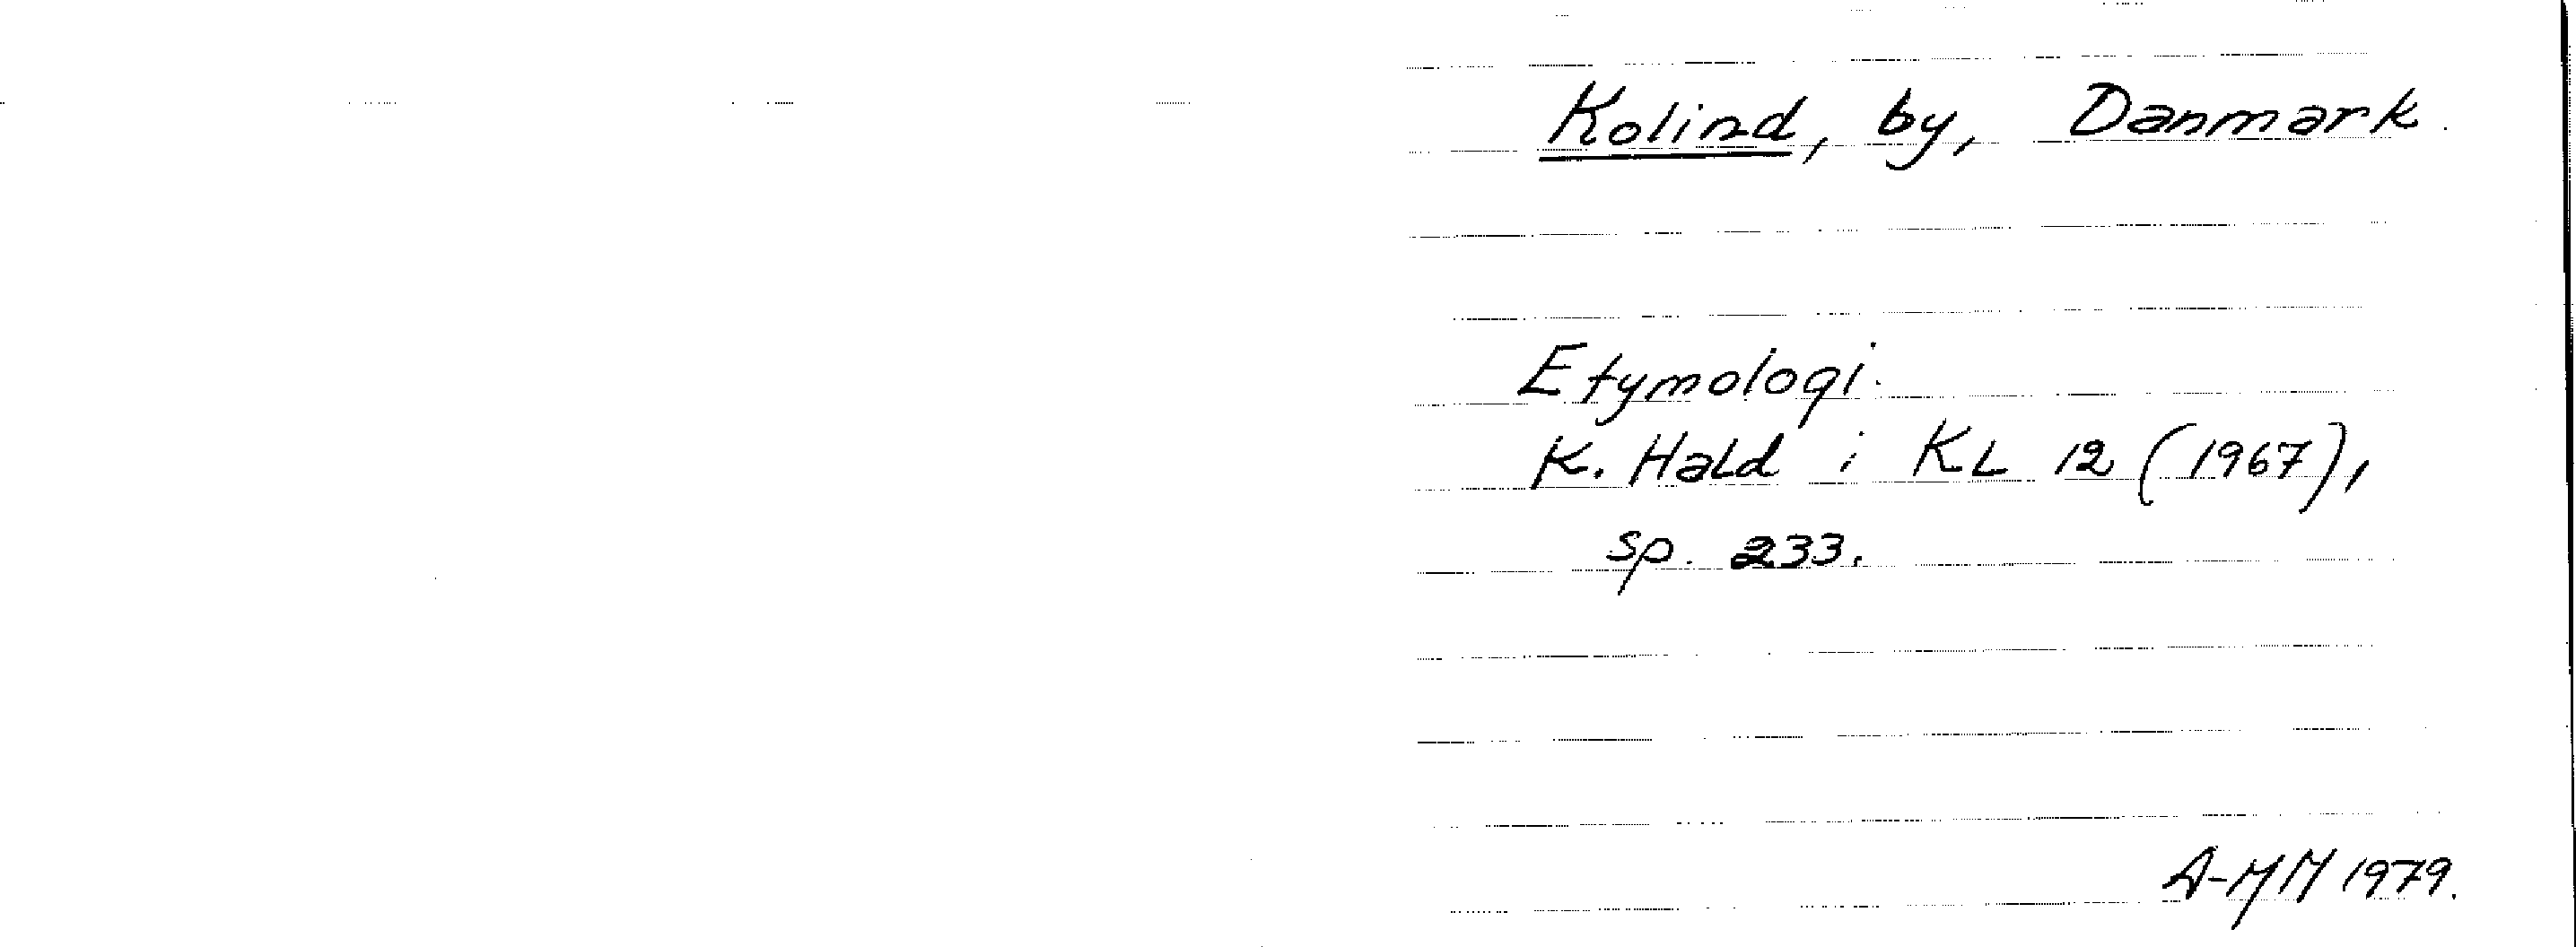 Kolind, by, Danmark.
Etymologi.
K. Hald i KL 12 (1967),
sp. 233.
A-MM 1979.